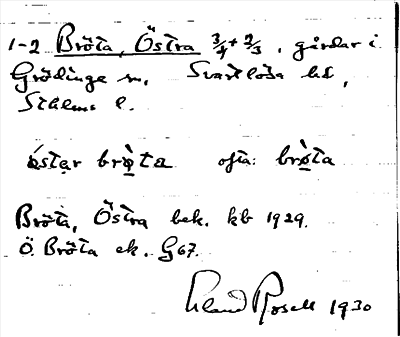 1-2 Bröta, Östra 3/4 + 2/3, gårdar i
Grödinge sn, Svartlösa hd,
Sthlms l.
östər brø̀ta ofta: brø̀ta
Bröta, Östra bek. kb 1929.
Ö. Bröta ek. G67.
Rosell 1930